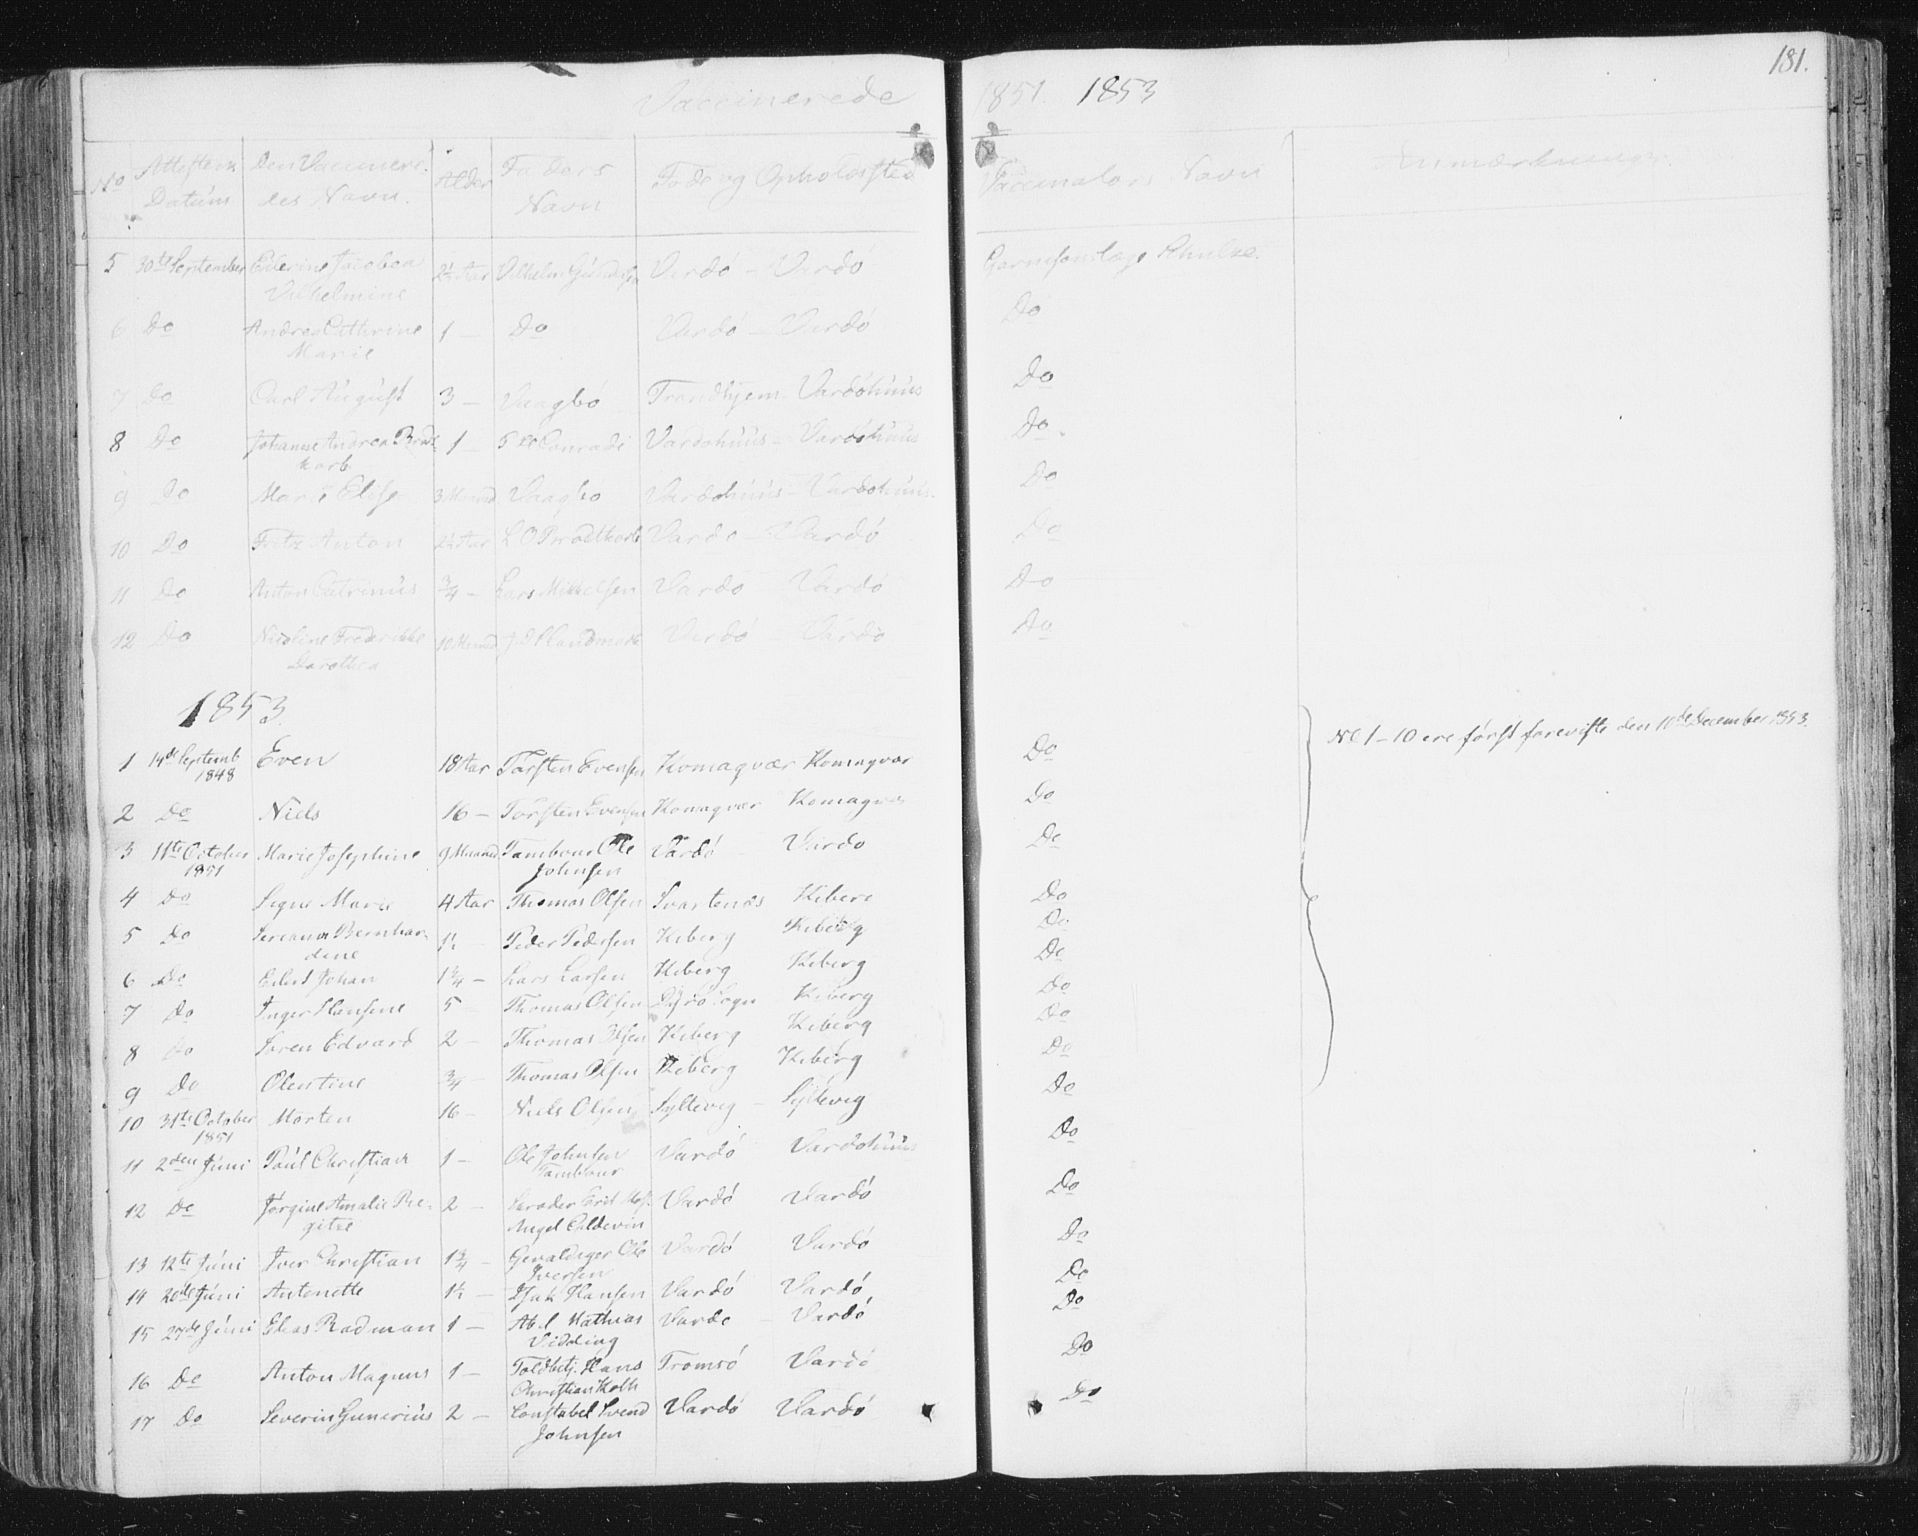 181.
Vaccinerede 1851. 1853
No Attestens Datum Den Vaccinere-des Navn. Alder Faders Navn Føde og Opholdssted Vaccinators Navn Anmærkninger
5 30te September Jacobea Vilhelmine 2½ Aar Vilhelm Vardø - Vardø Garnisonslæge
6 Do Andrea Cathrine Marie 1 - Do Vardø - Vardø Do
7 Do Carl August 3 - Vaagbø Trondhjem - Vardøhuus Do
8 Do Johanne Andrea Brodtkorb 1 - Conradi Vardøhuus - Vardøhuus Do
9 Do Marie Elise 3 Maaned Vaagbø Vardøhuus - Vardøhuus. Do
10 Do Fritz Anton 2½ Aar Brodtkorb Vardø - Vardø Do
11 Do Anton Catrinus ¾ - Lars Mikkelsen Vardø Vardø Do
12 Do Nicoline Frederikke Dorothea 10 Maaned Landmark Vardø - Vardø Do
1853.
No 1-10 ere først foreviste den 11de December 1853.
1 14de Septemb 1848 Even 18 Aar Torsten Evensen Komagvær Komagvær Do
2 Do Niels 16 - Torsten Evensen Komagvær Komagvær Do
3 11te October 1851 Marie Josephine 9 Maaned Tambour Ole Johnsen Vardø - Vardø Do
4 Do Signe Marie 4 Aar Thomas Olsen Svartenæs Kiberg Do
5 Do Bernhar-dine 1½ - Peder Pedersen Kiberg Kiberg Do
6 Do Johan 1¾ - Lars Larsen Kiberg Kiberg Do
7 Do Inger Hansine 5 - Thomas Olsen Dyrø Sogn Kiberg Do
8 Do Søren Edvard 2 - Thomas Olsen Kiberg Kiberg Do
9 Do Olentine ¾ - Thomas Olsen Kiberg Kiberg Do
10 31te October 1851 Morten 16 - Niels Olsen Syltevig - Syltevig Do
11 2den Juni Paul Christian 1 - Ole Johnsen Tambour Vardø Vardøhuus Do
12 Do Jørgine Amalie Re-gitze 2 - Angel Coldevin Vardø Vardø Do
13 12te Juni Iver Christian 1¾ - Gevaldiger Ole Iversen Vardø Vardø Do
14 20de Juni Antonette 1½ - Isak Hansen Vardø Vardø Do
15 27de Juni Elias Radman 1 - Abel Mathias Vidding Vardø - Vardø Do
16 Do Anton Magnus 1 - Toldbetj. Hans Christian Holk Tromsø Vardø Do
17 Do Severin Gunerius 2 - Constabel Svend Johnsen Vardø Vardø Do